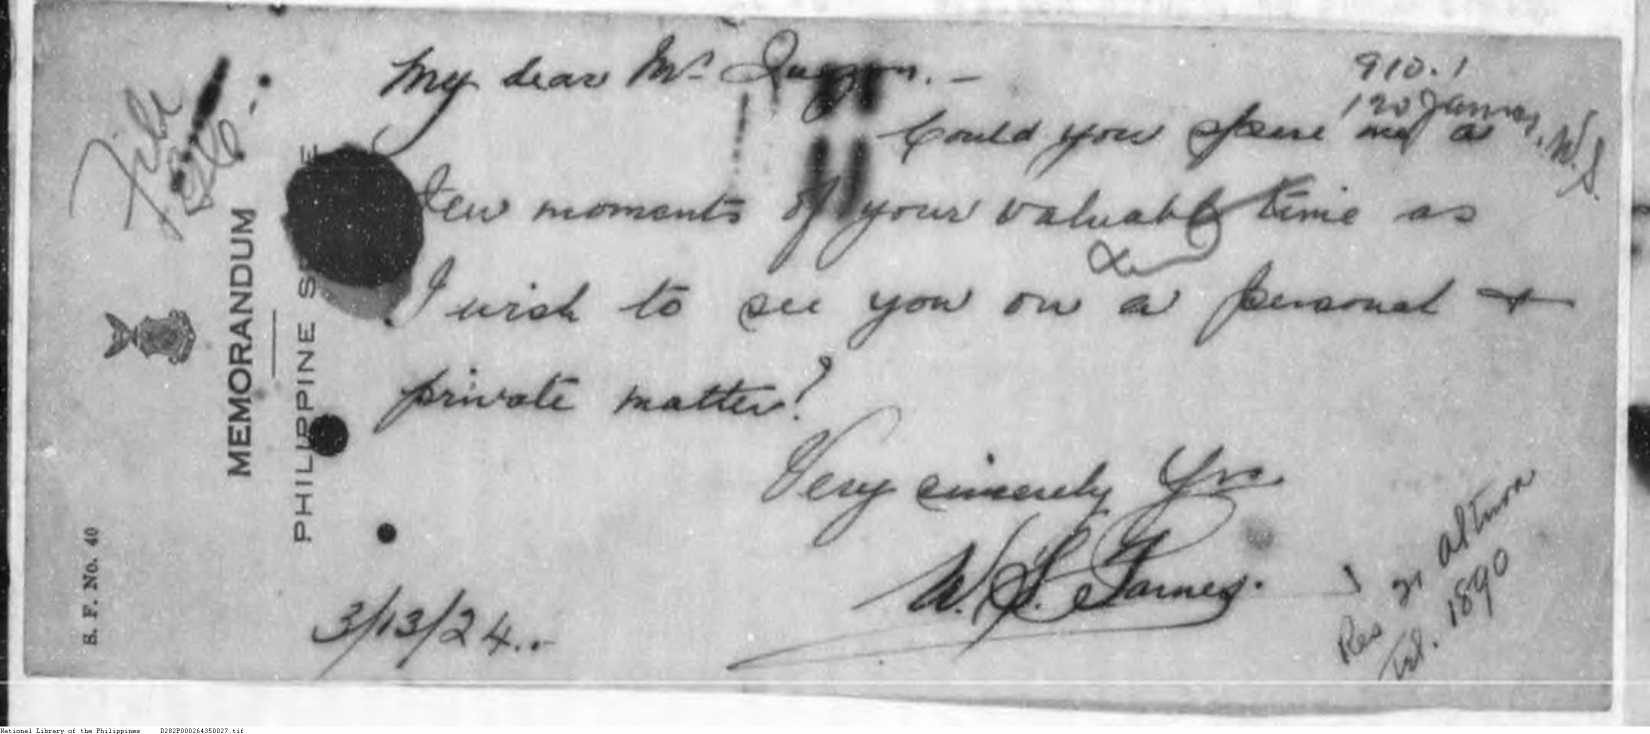 File
910.1
120 James, W.S.
MEMORANDUM
PHILIPPINE S E
S. F. No. 40
My dear Mr. Quezon. —
Could you spare me a
few moments of your valuable time as
I wish to see you on a personal +
private matter?
Very sincerely Yrs
W. S. James.
3/13/24.-
Res 21 Altura
Tel. 1890
National Library of the Philippines D282P000264350027.tif